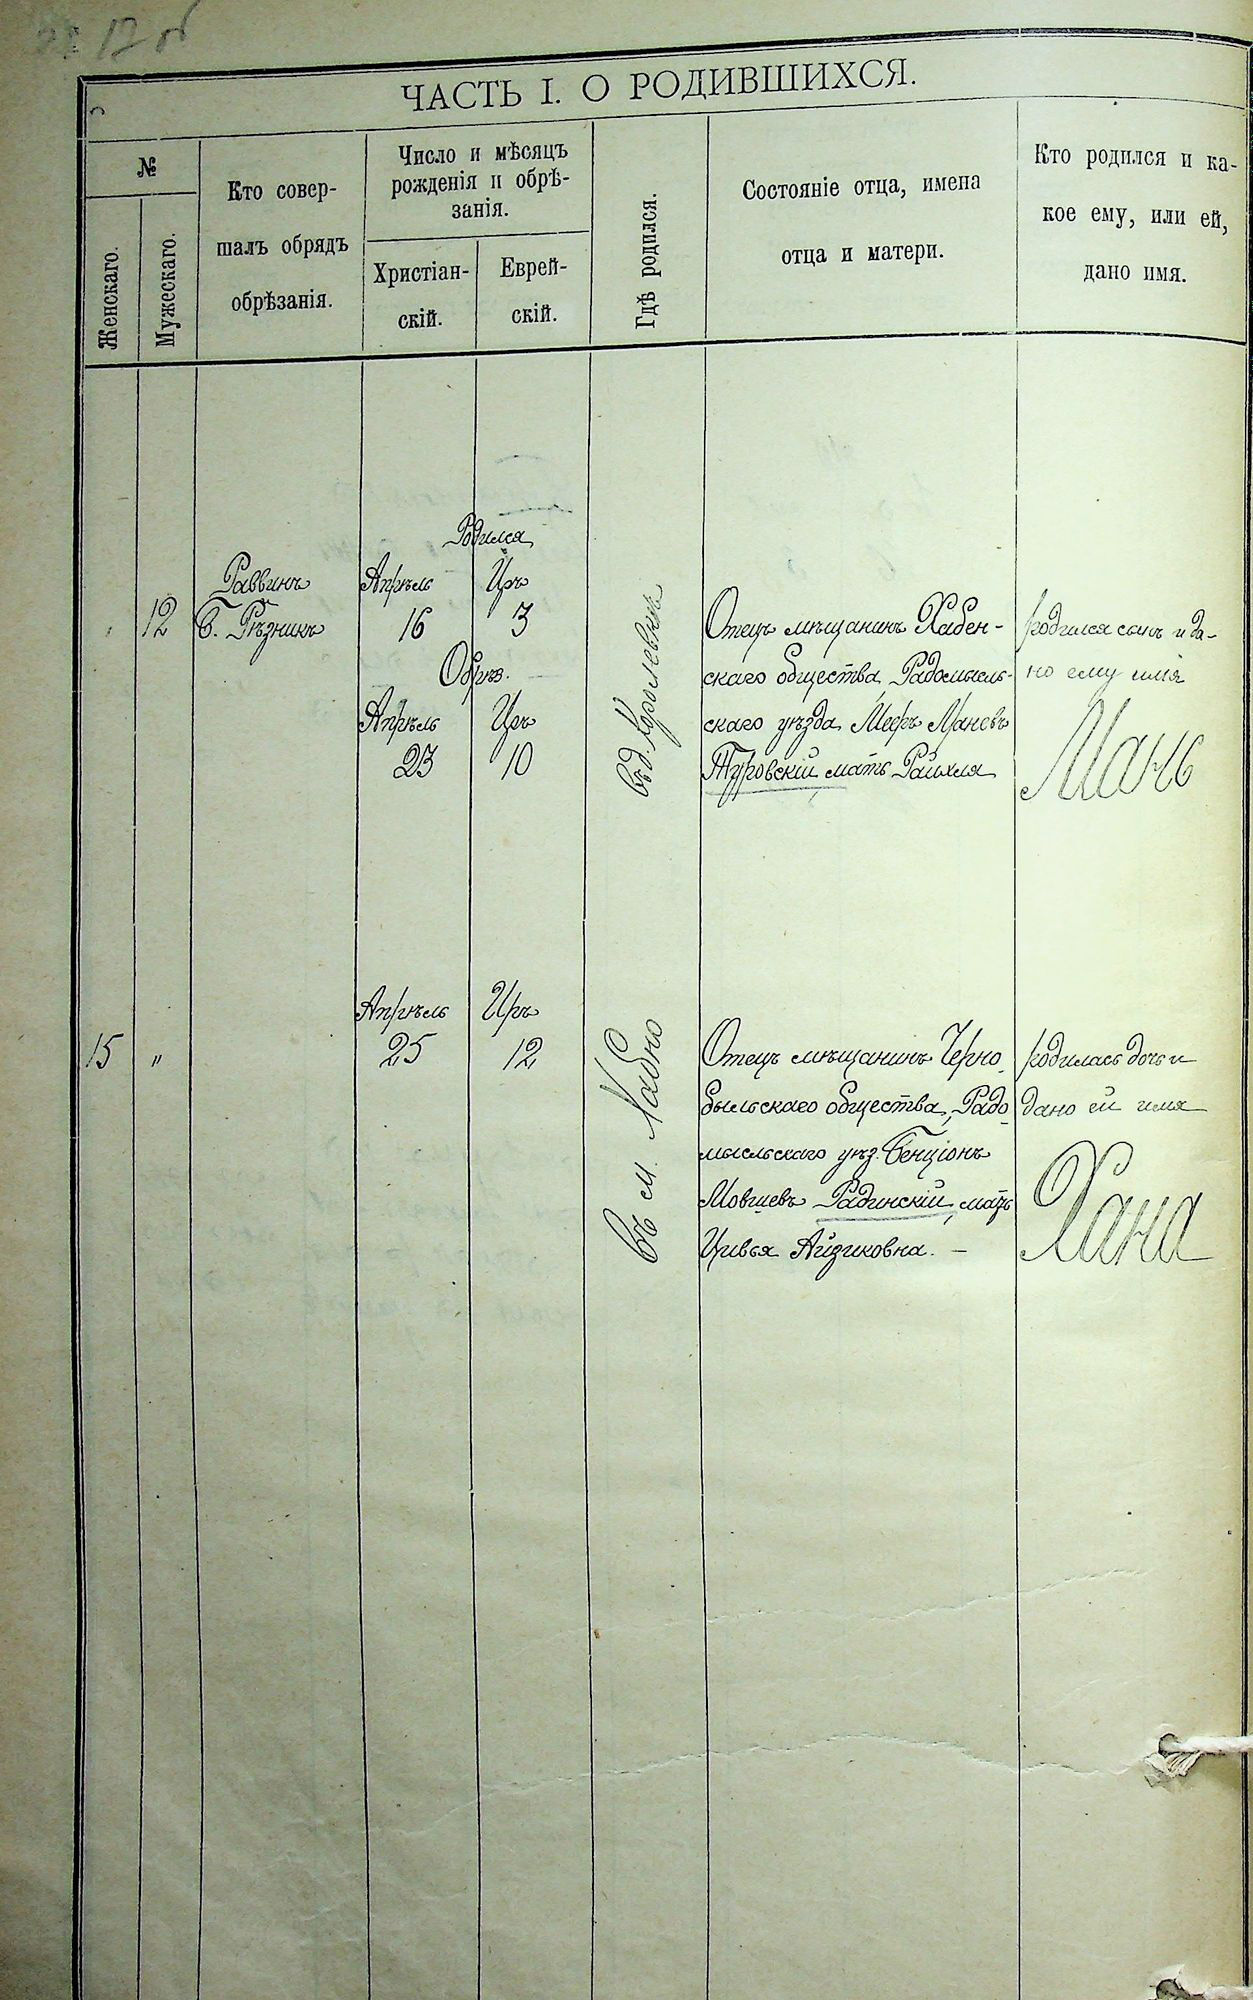 17 об
ЧАСТЬ I. О РОДИВШИХСЯ.
№
Женскаго.
Мужескаго.
Кто совер-
шалъ обрядъ
обрѣзанія.
Число и мѣсяцъ
рожденія и обрѣ-
занія.
Христіан-
скій.
Еврей-
скій.
Гдѣ родился.
Состояніе отца, имена
отца и матери.
Кто родился и ка-
кое ему, или ей,
дано имя.
12
Раввинъ
Б. Рѣзникъ
Родился
Апрѣль Иръ
16 3
Обрѣз.
Апрѣль Иръ
23 10
въ д. Королевкѣ
Отецъ мѣщанинъ Хабен-
скаго общества, Радомысль-
скаго уѣзда, Меръ Маневъ
Туровскій, мать Райхля
родился сынъ и да-
но ему имя
Мань
15 "
Апрѣль Иръ
25 12
въ м. Хабно
Отецъ мѣщанинъ Черно-
быльскаго общества, Радо-
мысльскаго уѣз. Бенціонъ
Мовшевъ Радинскій, мать
Цивья Айзиковна. —
родилась дочь и
дано ей имя
Хана